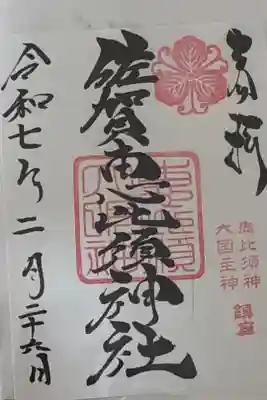 奉拝
佐賀恵比須神社
恵比須神
大国主神
鎮座
令和七年二月二十六日